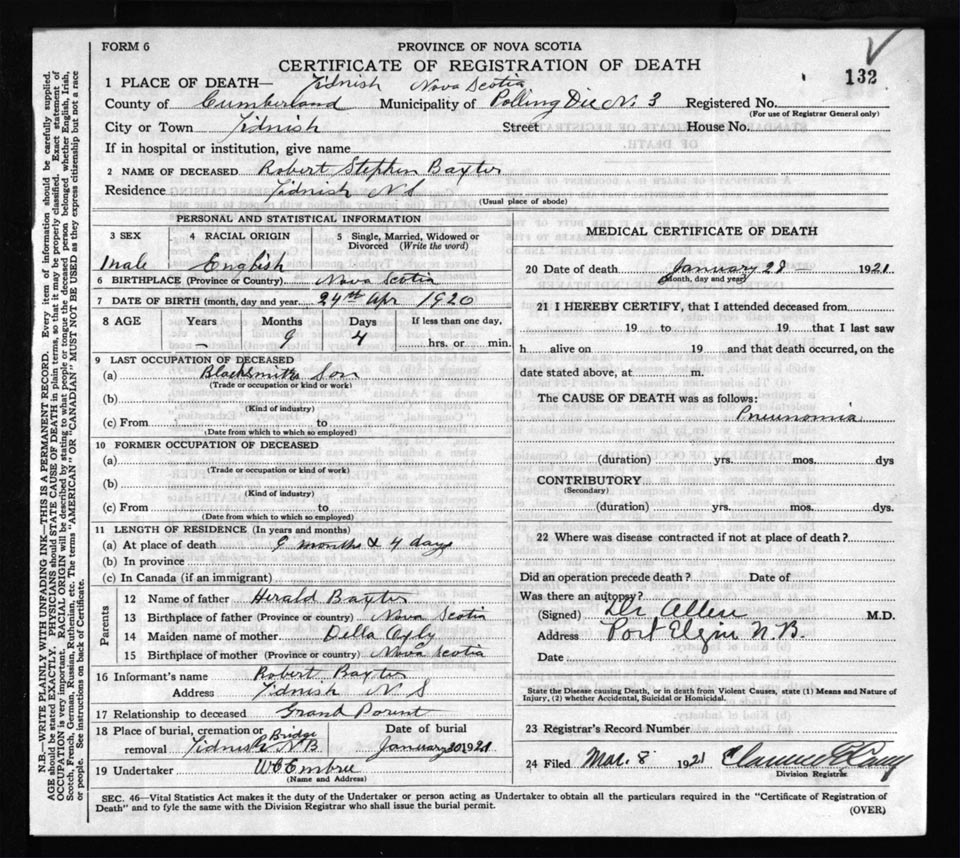 FORM 6
PROVINCE OF NOVA SCOTIA
CERTIFICATE OF REGISTRATION OF DEATH
132
1 PLACE OF DEATH— Tidnish Nova Scotia
County of Cumberland Municipality of Polling Div No. 3 Registered No.
(For use of Registrar General only)
City or Town Tidnish Street House No.
If in hospital or institution, give name
2 NAME OF DECEASED Robert Stephen Baxter
Residence Tidnish N S
(Usual place of abode)
PERSONAL AND STATISTICAL INFORMATION
3 SEX
Male
4 RACIAL ORIGIN
English
5 Single, Married, Widowed or Divorced (Write the word)
6 BIRTHPLACE (Province or Country) Nova Scotia
7 DATE OF BIRTH (month, day and year) 24th Apr 1920
8 AGE Years Months Days If less than one day,
– 9 4 hrs. or min.
9 LAST OCCUPATION OF DECEASED
(a) Blacksmiths Son
(Trade or occupation or kind or work)
(b)
(Kind of industry)
(c) From to
(Date from which to which so employed)
10 FORMER OCCUPATION OF DECEASED
(a)
(Trade or occupation or kind of work)
(b)
(Kind of industry)
(c) From to
(Date from which to which so employed)
11 LENGTH OF RESIDENCE (In years and months)
(a) At place of death 9 months & 4 days
(b) In province
(c) In Canada (if an immigrant)
Parents
12 Name of father Herald Baxter
13 Birthplace of father (Province or country) Nova Scotia
14 Maiden name of mother Della
15 Birthplace of mother (Province or country) Nova Scotia
16 Informant's name Robert Baxter
Address Tidnish N S
17 Relationship to deceased Grand Parent
18 Place of burial, cremation or removal Tidnish Bridge N B
Date of burial January 30 1921
19 Undertaker W C Embree
(Name and Address)
MEDICAL CERTIFICATE OF DEATH
20 Date of death January 28 – 1921
(Month, day and year)
21 I HEREBY CERTIFY, that I attended deceased from
19 to 19 that I last saw
h alive on 19 and that death occurred, on the
date stated above, at m.
The CAUSE OF DEATH was as follows:
Pnunomia
(duration) yrs. mos. dys
CONTRIBUTORY
(Secondary)
(duration) yrs. mos. dys.
22 Where was disease contracted if not at place of death?
Did an operation precede death? Date of
Was there an autopsy?
(Signed) Dr Allen M.D.
Address Port Elgin N.B.
Date
State the Disease causing Death, or in death from Violent Causes, state (1) Means and Nature of
Injury, (2) whether Accidental, Suicidal or Homicidal.
23 Registrar's Record Number
24 Filed Mar. 8 1921 Clarence
Division Registrar
SEC. 46—Vital Statistics Act makes it the duty of the Undertaker or person acting as Undertaker to obtain all the particulars required in the "Certificate of Registration of
Death" and to fyle the same with the Division Registrar who shall issue the burial permit.
(OVER)
N.B.—WRITE PLAINLY WITH UNFADING INK—THIS IS A PERMANENT RECORD. Every item of information should be carefully supplied.
AGE should be stated EXACTLY. PHYSICIANS should STATE CAUSE OF DEATH in plain terms, so that it may be properly classified. Exact statement of
OCCUPATION is very important. RACIAL ORIGIN will be described by stating to what people or tongue the deceased person belonged whether English, Irish,
Scotch, French, German, Russian, Ruthenian, etc. The terms "AMERICAN" OR "CANADIAN" MUST NOT BE USED as they express citizenship but not a race
or people. See instructions on back of Certificate.